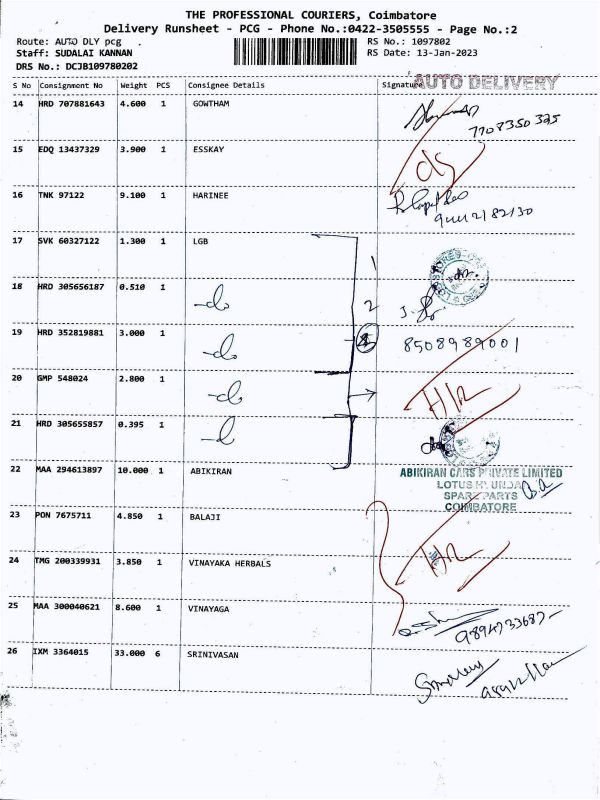 THE PROFESSIONAL COURIERS, Coimbatore
Delivery Runsheet - PCG - Phone No.:0422-3505555 - Page No.:2
Route: AUTO DLY pcg RS No.: 1097802
Staff: SUDALAI KANNAN RS Date: 13-Jan-2023
DRS No.: DCJB109780202
AUTO DELIVERY
S No Consignment No Weight PCS Consignee Details Signature
14 HRD 707881643 4.600 1 GOWTHAM
7708350325
15 EDQ 13437329 3.900 1 ESSKAY
16 TNK 97122 9.100 1 HARINEE
17 SVK 60327122 1.300 1 LGB
1
18 HRD 305656187 0.510 1 -do
2
19 HRD 352819881 3.000 1 -do
8508989001
20 GMP 548024 2.800 1 -do
21 HRD 305655857 0.395 1 -d
22 MAA 294613897 10.000 1 ABIKIRAN
ABIKIRAN CARS PRIVATE LIMITED
LOTUS HYUNDAI
SPARE PARTS
COIMBATORE
23 PON 7675711 4.850 1 BALAJI
24 TMG 200339931 3.850 1 VINAYAKA HERBALS
25 MAA 300040621 8.600 1 VINAYAGA
9894733687
26 IXM 3364015 33.000 6 SRINIVASAN